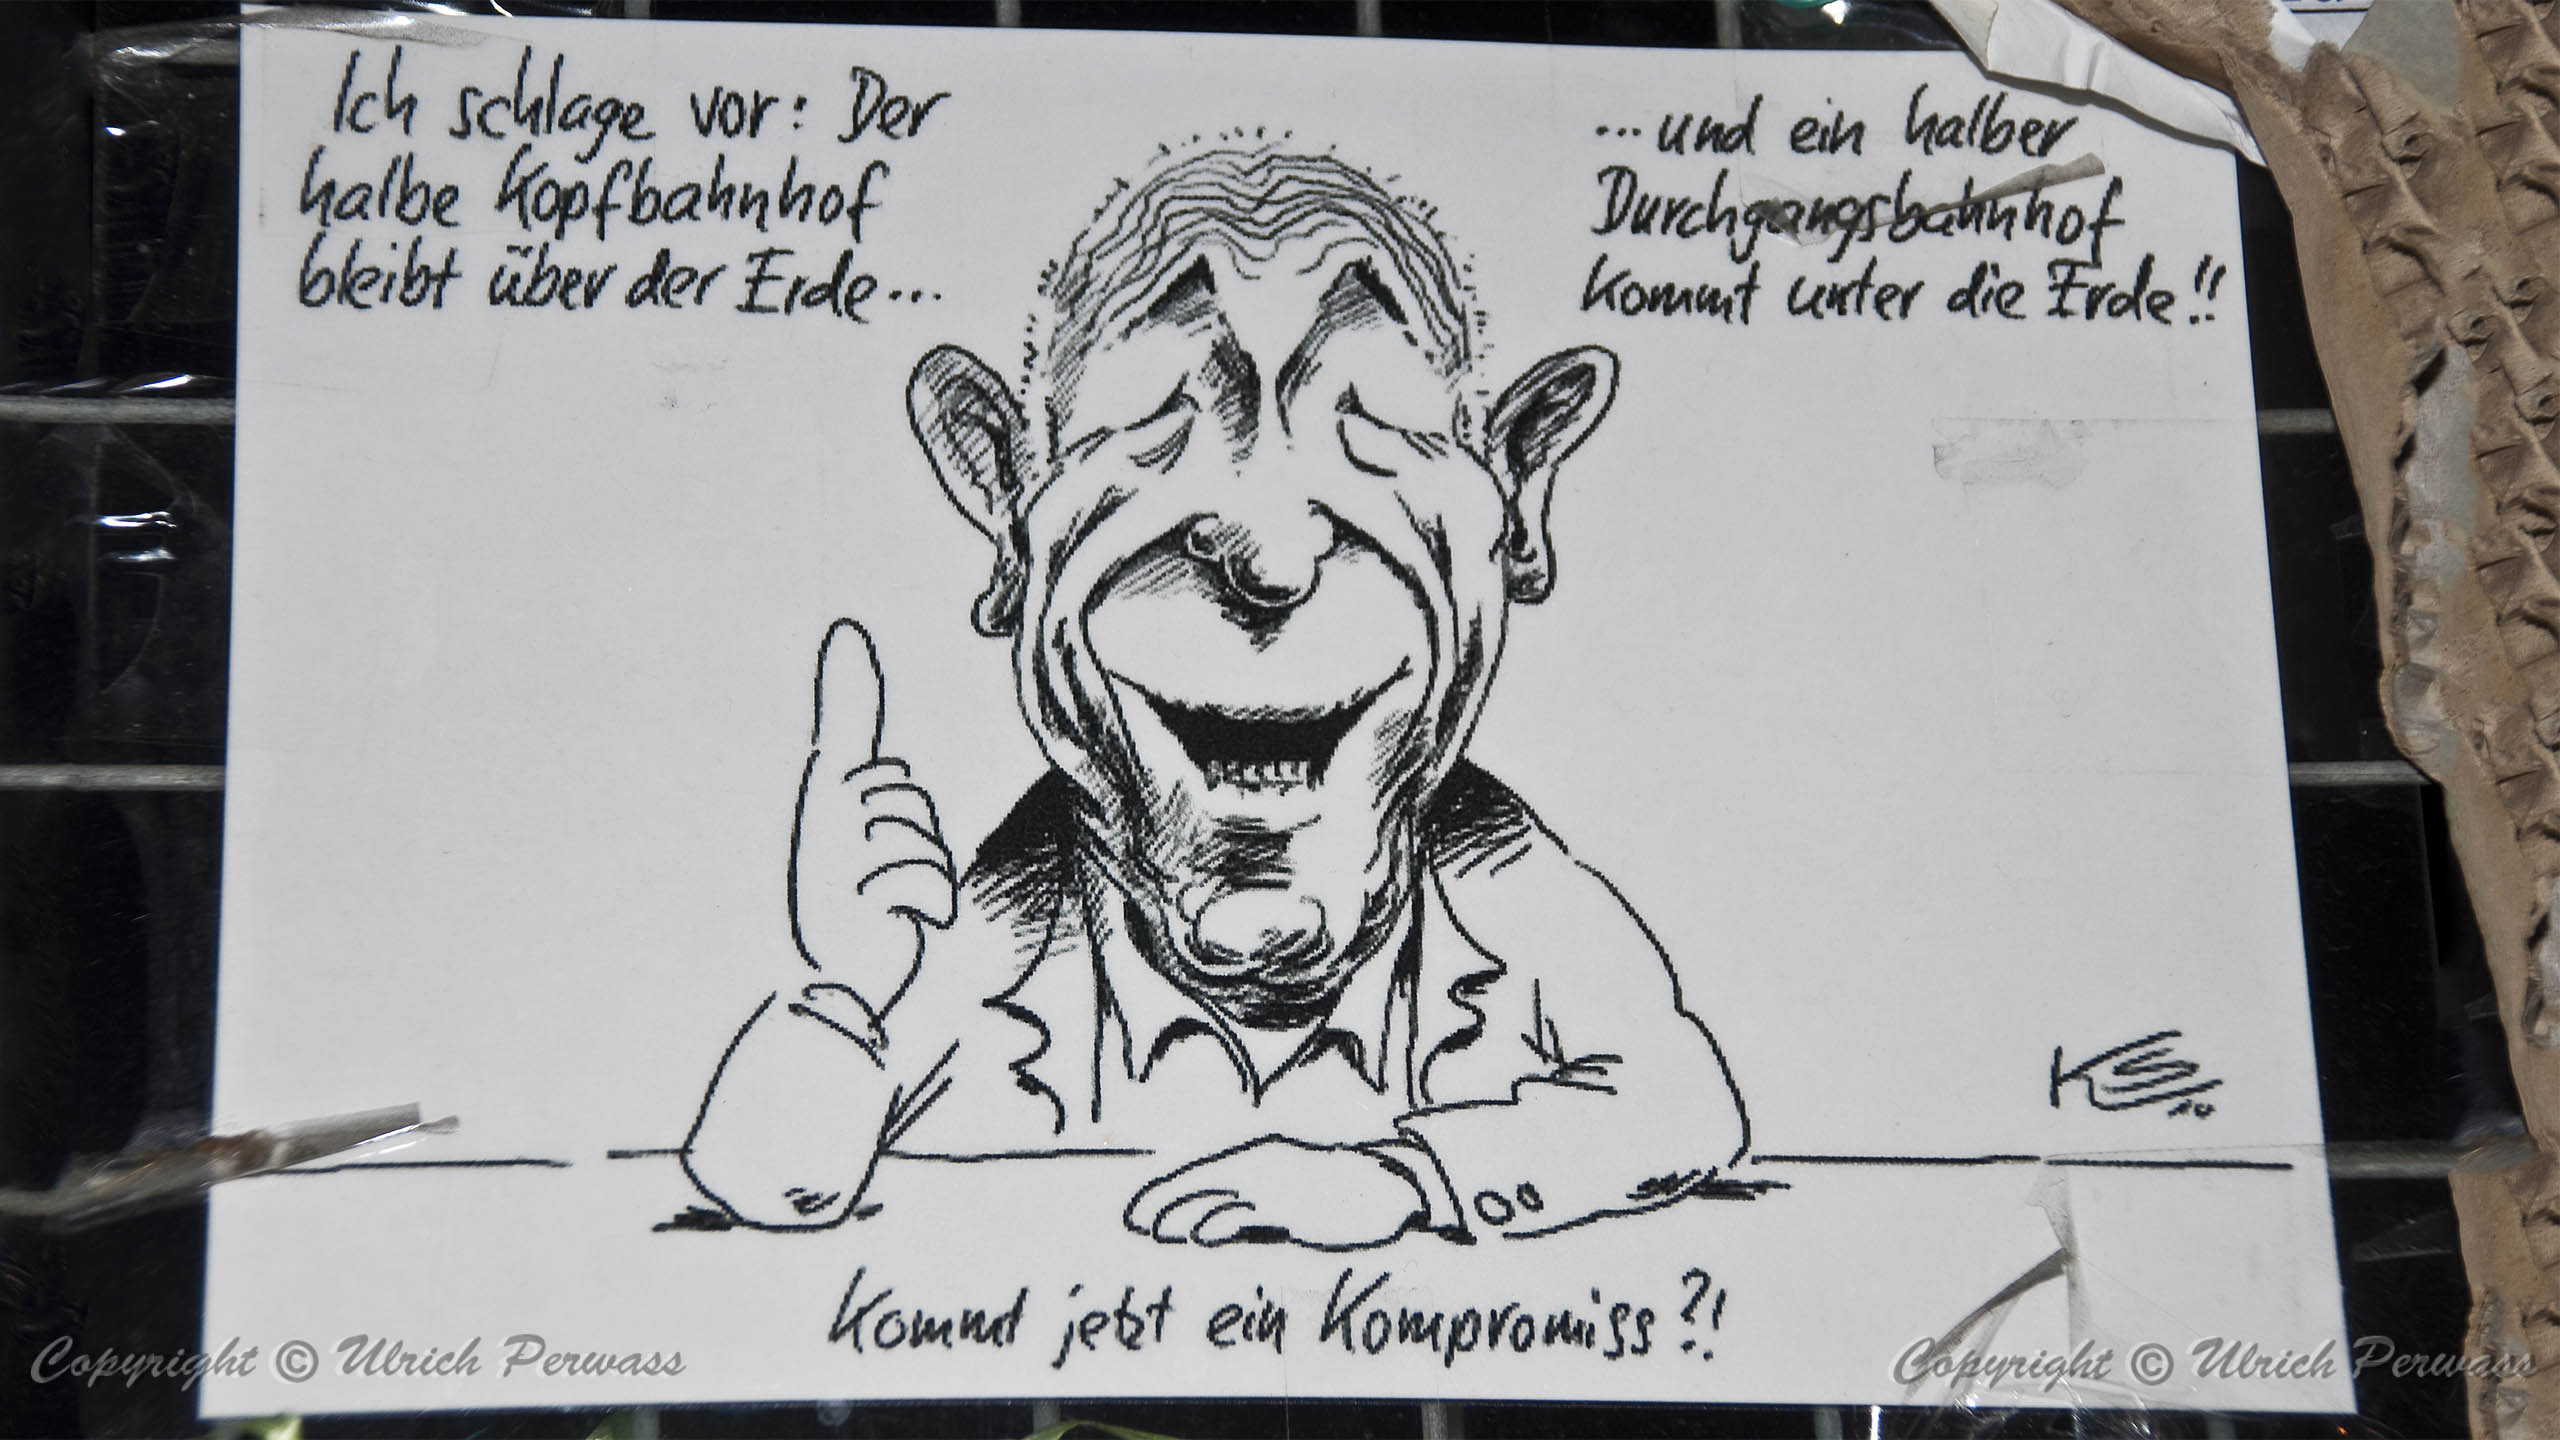 Ich schlage vor: Der
halbe Kopfbahnhof
bleibt über der Erde...
...und ein halber
Durchgangsbahnhof
kommt unter die Erde!!
Kommt jetzt ein Kompromiss?!
Copyright © Ulrich Perwass
Copyright © Ulrich Perwass